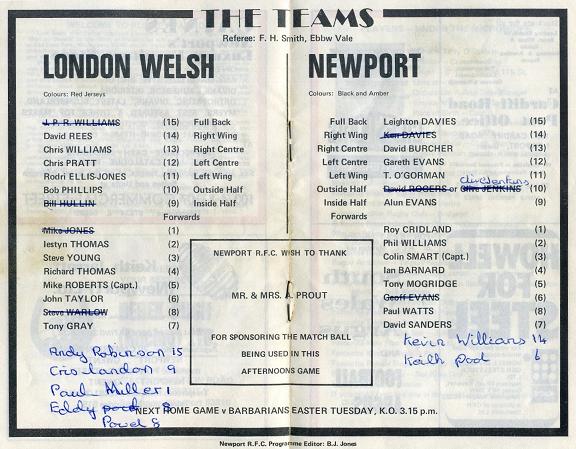 THE TEAMS
Referee: F. H. Smith, Ebbw Vale
LONDON WELSH
Colours: Red Jerseys
J. P. R. WILLIAMS (15) Full Back
David REES (14) Right Wing
Chris WILLIAMS (13) Right Centre
Chris PRATT (12) Left Centre
Rodri ELLIS-JONES (11) Left Wing
Bob PHILLIPS (10) Outside Half
Bill HULLIN (9) Inside Half
Forwards
Mike JONES (1)
Iestyn THOMAS (2)
Steve YOUNG (3)
Richard THOMAS (4)
Mike ROBERTS (Capt.) (5)
John TAYLOR (6)
Steve WARLOW (8)
Tony GRAY (7)
Andy Robinson 15
Cris Landon 9
Paul Miller 1
Eddy 8
Powel 8
NEWPORT
Colours: Black and Amber
Full Back Leighton DAVIES (15)
Right Wing Ken DAVIES (14)
Right Centre David BURCHER (13)
Left Centre Gareth EVANS (12)
Left Wing T. O'GORMAN (11)
Clive Jenkins
Outside Half David ROGERS or Clive JENKINS (10)
Inside Half Alun EVANS (9)
Forwards
Roy CRIDLAND (1)
Phil WILLIAMS (2)
Colin SMART (Capt.) (3)
Ian BARNARD (4)
Tony MOGRIDGE (5)
Geoff EVANS (6)
Paul WATTS (8)
David SANDERS (7)
Kevin Williams 14
Keith Pool 6
NEWPORT R.F.C. WISH TO THANK
MR. & MRS. A. PROUT
FOR SPONSORING THE MATCH BALL
BEING USED IN THIS
AFTERNOONS GAME
NEXT HOME GAME v BARBARIANS EASTER TUESDAY, K.O. 3.15 p.m.
Newport R.F.C. Programme Editor: B.J. Jones